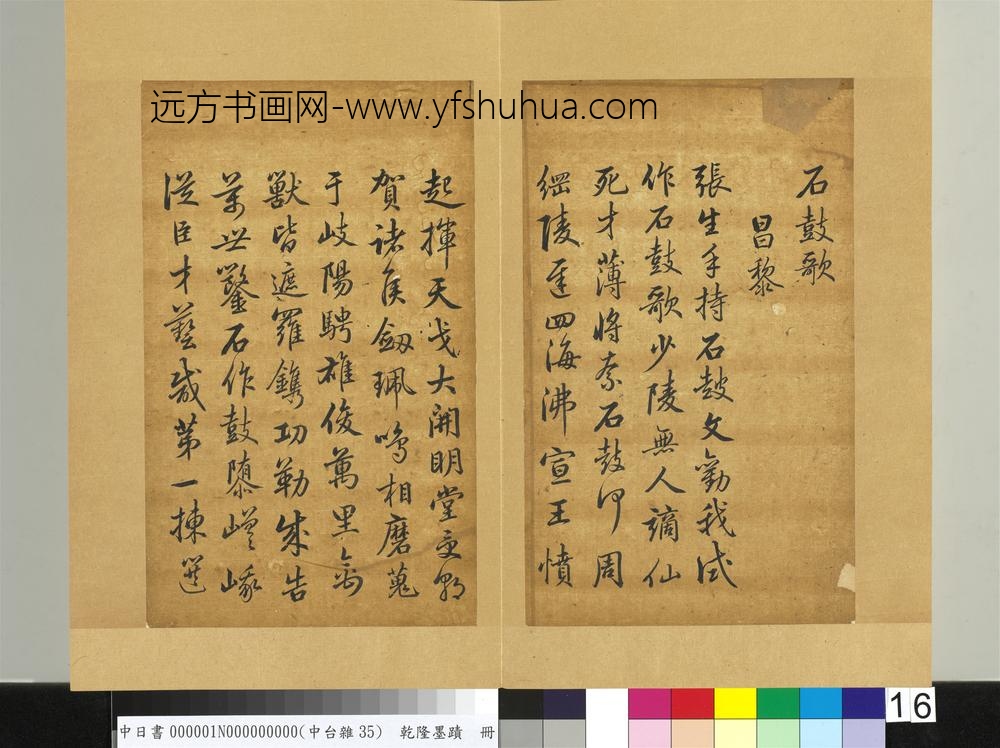 远方书画网-www.yfshuhua.com
石鼓歌
昌黎
張生手持石鼓文勸我試
作石鼓歌少陵無人謫仙
死才薄將奈石鼓何周
綱陵遲四海沸宣王憤
起揮天戈大開明堂受朝
賀諸侯劔珮鳴相磨蒐
于岐陽騁雄俊萬里禽
獸皆遮羅鐫功勒成告
萬世鑿石作鼓隳嵯峨
從臣才藝咸第一揀選
16
中日書 000001N000000000(中台雜 35) 乾隆墨蹟 冊